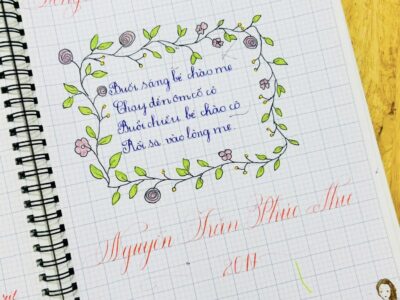 Buổi sáng bé chào mẹ
Chạy đến ôm cổ cô
Buổi chiều bé chào cô
Rồi sà vào lòng mẹ.
Nguyễn Trần Phúc
2017